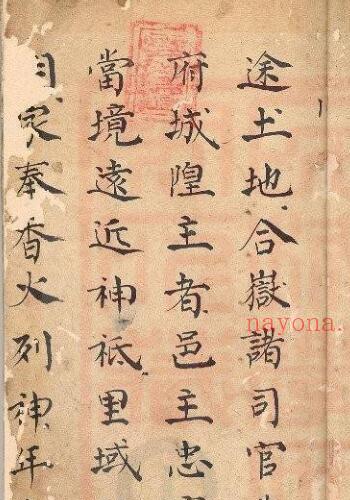 途土地合嶽諸司官
府城隍主者邑主忠
當境遠近神祗里域
奉香火列神年
nayona.